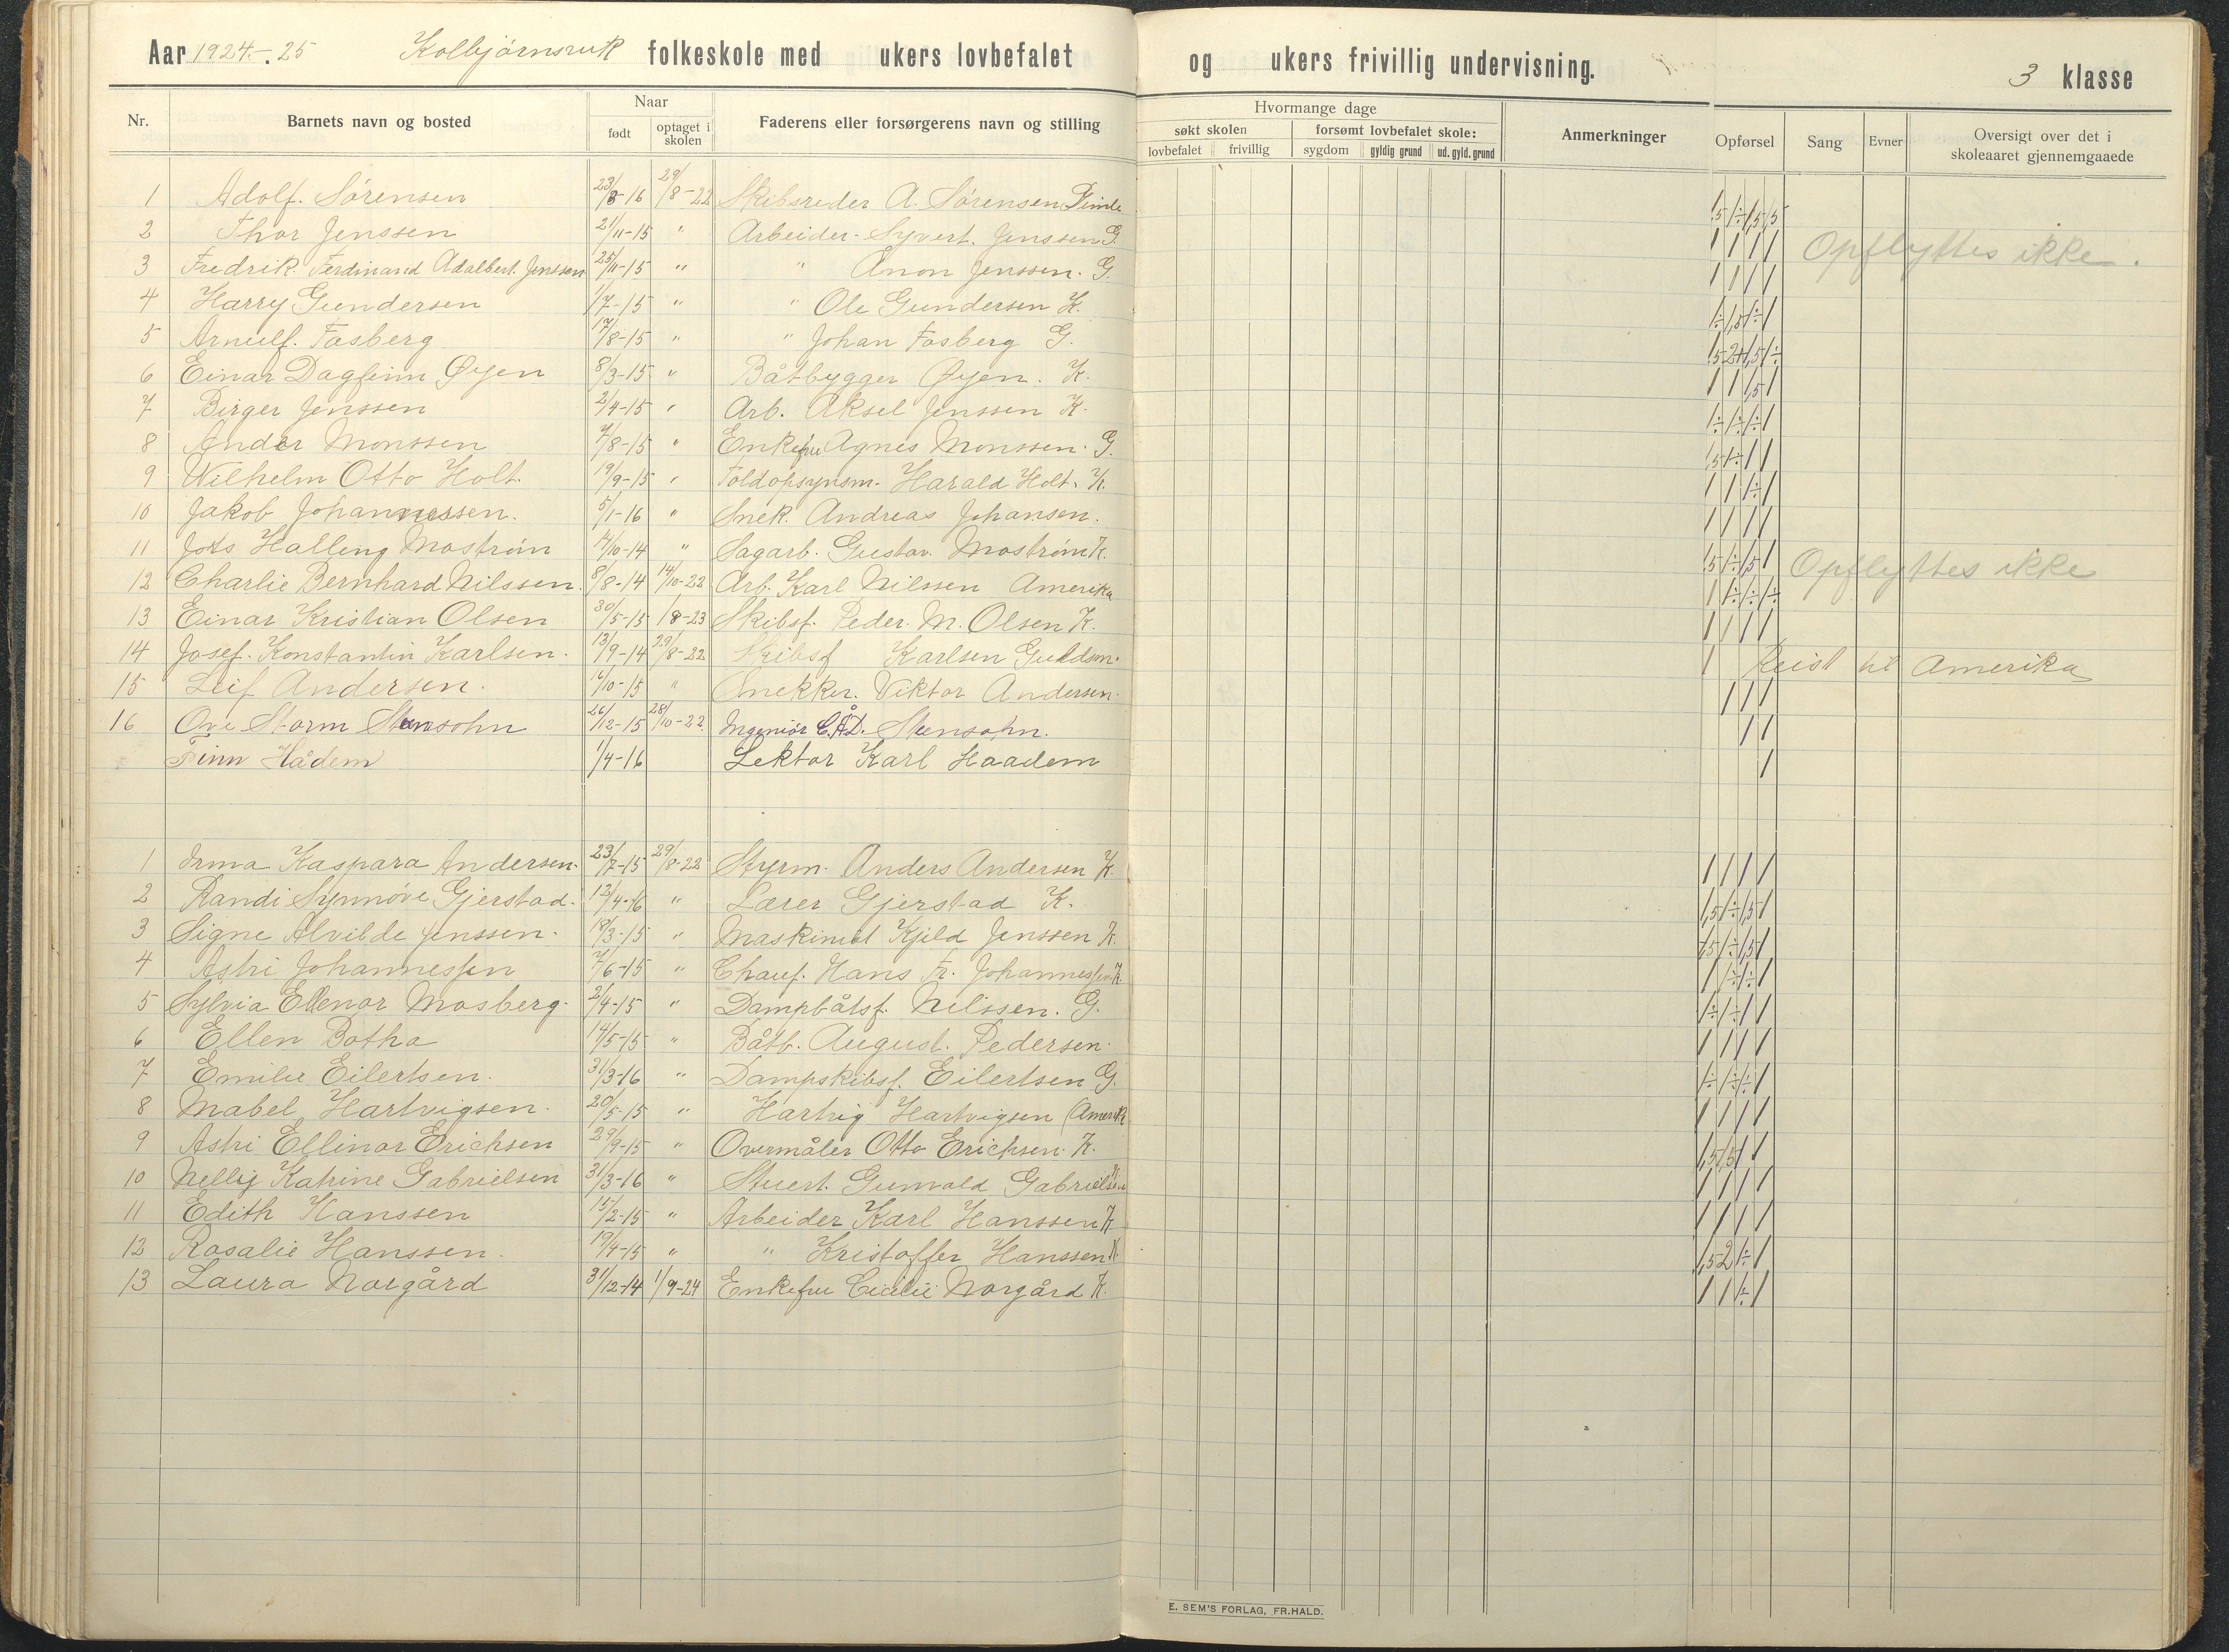 Aar 1924.-.25 Kolbjørnsvik folkeskole med ukers lovbefalet og ukers frivillig undervisning. 3 klasse
Nr. Barnets navn og bosted Naar født optaget i skolen Faderens eller forsørgerens navn og stilling Hvormange dage Anmerkninger Opførsel Sang Evner Oversigt over det i skoleaaret gjennemgaaede
søkt skolen forsømt lovbefalet skole:
lovbefalet frivillig sygdom gyldig grund ud. gyld. grund
1 Adolf. Sørensen 23/8-16 29/8-22 Skibsreder A. Sørensen
2 Thor Jenssen 21/11-15 " Arbeider. Syvert. Jenssen G. Opflyttes ikke.
3 Fredrik. Ferdinand Adalbert. Jenssen 25/11-15 " " Anon Jenssen. G.
4 Harry Gundersen 1/7-15 " " Ole Gundersen K.
5 Arnulf. Fosberg 17/8-15 " " Johan Fosberg G.
6 Einar Dagfinn Øyen 8/3-15 " Båtbygger Øyen. K.
7 Birger Jenssen 2/4-15 " Arb. Aksel Jenssen K.
8 Andor Monssen 7/8-15 " Enkefru Agnes Monssen. G.
9 Wilhelm Otto Holt. 19/9-15 " Toldopsynsm. Harald Holt. K.
10 Jakob Johannessen. 5/1-16 " Snek. Andreas Johansen.
11 Halling Mostrøm 14/10-14 " Sagarb. Gustav. Mostrøm K.
12 Charlie Bernhard Nilssen. 8/8-14 14/10-22 Arb. Karl Nilssen Amerika Opflyttes ikke
13 Einar Kristian Olsen 30/5-15 18-23 Skibsf. Peder. M. Olsen K.
14 Josef. Konstantin Karlsen. 13/9-14 29/8-22 Skibsf Karlsen Guldsm. Reist til Amerika
15 Leif Andersen. 16/10-15 " Snekker. Viktor Andersen.
16 Ove Storm Stensohn 26/12-15 28/10-22 Ingeniør C.Å.D. Stensohn.
Finn Hådem 1/4-16 Lektor Karl Haadem
1 Irma Kaspara Andersen. 23/7-15 29/8-22 Styrm. Anders Andersen K.
2 Randi Synnøve Gjerstad. 12/4-16 " Lærer Gjerstad K.
3 Signe Alvilde Jenssen. 18/3-15 " Maskinist Kjeld Jenssen K.
4 Astri Johannessen 7/6-15 " Chauf. Hans Fr. Johannessen K.
5 Sylvia Ellenor Mosberg. 2/4-15 " Dampbåtsf. Nilssen. G.
6 Ellen Botha 14/5-15 " Båtb. August. Pedersen.
7 Emilie Eilertsen. 31/3-16 " Dampskibsf. Eilertsen G.
8 Mabel Hartvigsen. 20/5-15 " Hartvig Hartvigsen (Amerik
9 Astri Ellinor Erichsen 29/9-15 " Overmåler Otto Erichsen. K.
10 Nelly Katrine Gabrielsen 31/3-16 " Stuert. Gunvald Gabrielsen
11 Edith Hanssen 15/2-15 " Arbeider Karl Hanssen K
12 Rosalie Hanssen. 19/4-15 " " Kristoffer Hanssen K.
13 Laura Norgård 31/12-14 1/9-24 Enkefru Cicilie Norgård K.
E. SEM'S FORLAG, FR.HALD.